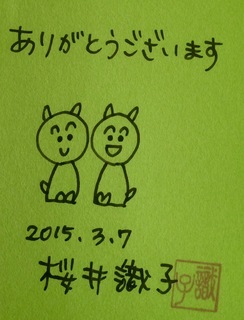 ありがとうございます
2015.3.7
桜井識子
識子